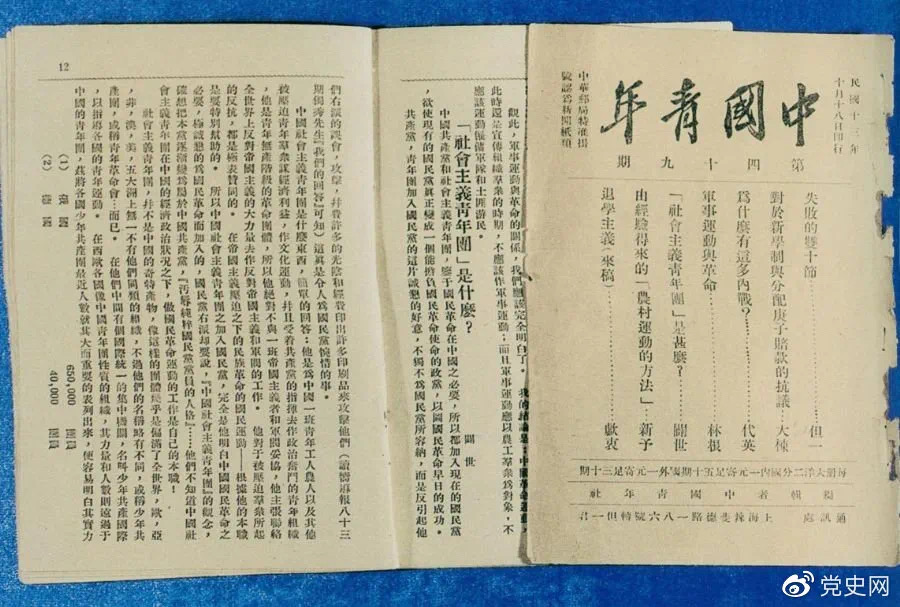 民國十三年
十月十八日印行
中國青年
第四十九期
中華郵局特准掛
號認為新聞紙類
失敗的雙十節……但一
對於新學制與分配庚子賠款的抗議……大楝
為什麼有這多內戰?……代英
軍事運動與革命……林根
「社會主義青年團」是甚麼?……闢世
由經驗得來的「農村運動的方法」…新予
退學主義(來稿)……獻衷
每册大洋二分國內一元寄足五十期國外一元寄足三十期
編輯者中國青年社
通訊處 上海辣斐德路一八六號轉但一君
觀此,軍事運動與革命的關係,我們應該完全明白了。
此時還是宣傳組織羣衆的時期,不應該作軍事運動;而且軍事運動應以農工羣衆為對象,不
應該運動僱備軍隊和土匪游民。
「社會主義青年團」是什麼?
闢世
中國共產黨和社會主義青年團,鑒于國民革命在中國之必要,所以都加入現在的國民黨
,欲使現有的國民黨眞正變成一個能擔負國民革命使命的政黨,以圖國民革命早日的成功。
共產黨,青年團加入國民黨的這片誠懇的好意,不獨不為國民黨所容納,而是反引起他
12
們右派的誤會,攻擊,幷費許多的光陰和經費印出許多印刷品來攻擊他們(讀嚮導報八十三
期獨秀先生『我們的回答』可知)這眞是令人為國民黨惋惜的事。
中國社會主義青年團是什麼東西,簡單的回答:他是為中國一班青年工人農人以及其他
被壓迫青年羣衆謀經濟利益,作文化運動,幷且受着共產黨的指揮去作政治奮鬥的青年組織
,他是青年無產階級的革命團體,所以他絕對不與一班帝國主義者和軍閥妥協,他主張聯絡
全世界上反對帝國主義的大力量去作反對帝國主義和軍閥的工作。 他對于被壓迫羣衆所起
的反抗,都是極表贊同的。 在帝國主義壓迫之下的民族革命的國民運動——根據他的本職
是要特別幫助的。 所以中國社會主義青年團之加入國民黨,完全是他明白中國國民革命之
必要,極誠懇的為國民革命而加入的,國民黨右派却要說,『中國社會主義青年團』的觀念,
確想把本黨逐漸變為屬於中國共產黨,『汚辱純粹國民黨黨員的人格』……他們不知道中國社
會主義青年團在中國的經濟政治狀況之下,做國民革命運動的工作是自己的本職!
社會主義青年團,幷不是中國的奇特產物,像這樣的團體幾乎是偏滿了全世界,歐,亞
,非,澳,美,五大洲上無一不有他們同類的組織,不過他們的名稱略有不同,或稱少年共
產團,或稱青年革命會…而已。 在他們中間有個國際統一的集中機關,名叫少年共產國際
,以指導各國的青年運動。 在西歐各國像中國青年團性質的組織,其力量和人數則遠過于
中國的青年團,茲將各國少年共產團最近人數就其大而重要的表列出來,使容易明白其實力
(1) 630,000
(2) 40,000
党史网